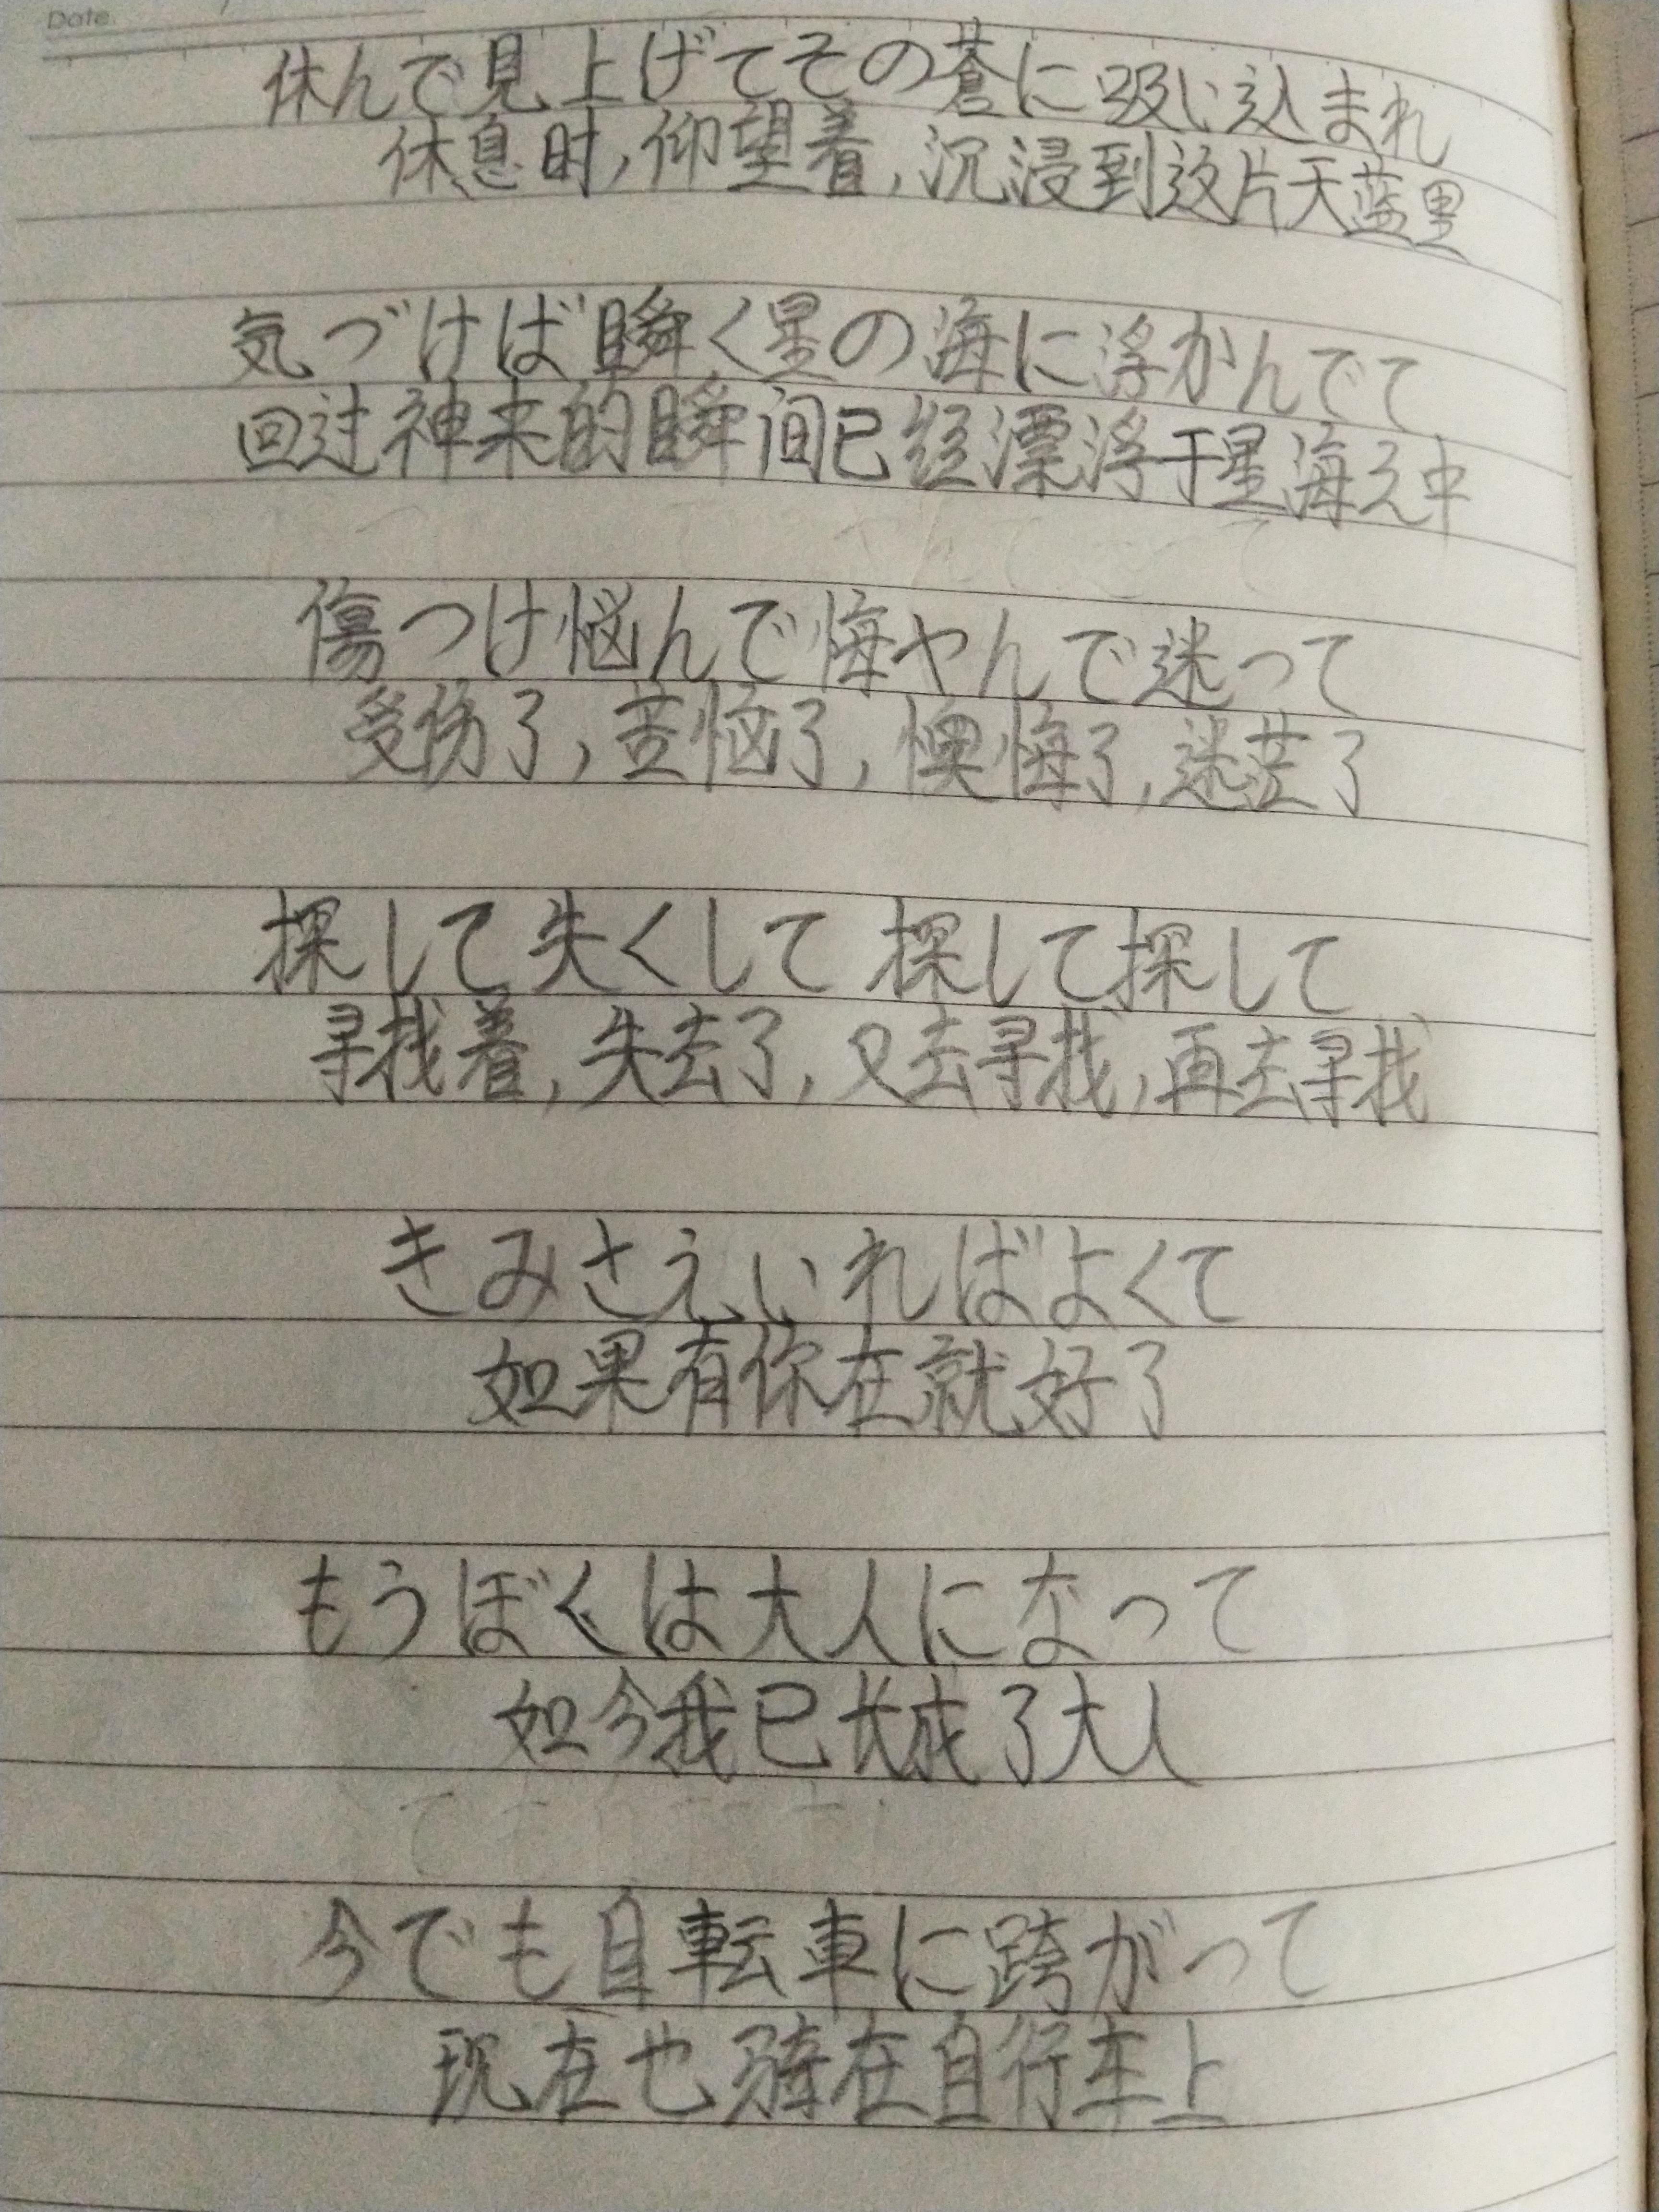 Date.
休んで見上げてその蒼に吸い込まれ
休息时,仰望着,沉浸到这片天蓝里
気づけば瞬く星の海に浮かんでて
回过神来的瞬间已经漂浮于星海之中
傷つけ悩んで悔やんで迷って
受伤了,苦恼了,懊悔了,迷茫了
探して失くして 探して探して
寻找着,失去了,又去寻找,再去寻找
きみさえいればよくて
如果有你在就好了
もうぼくは大人になって
如今我已长成了大人
今でも自転車に跨がって
现在也骑在自行车上